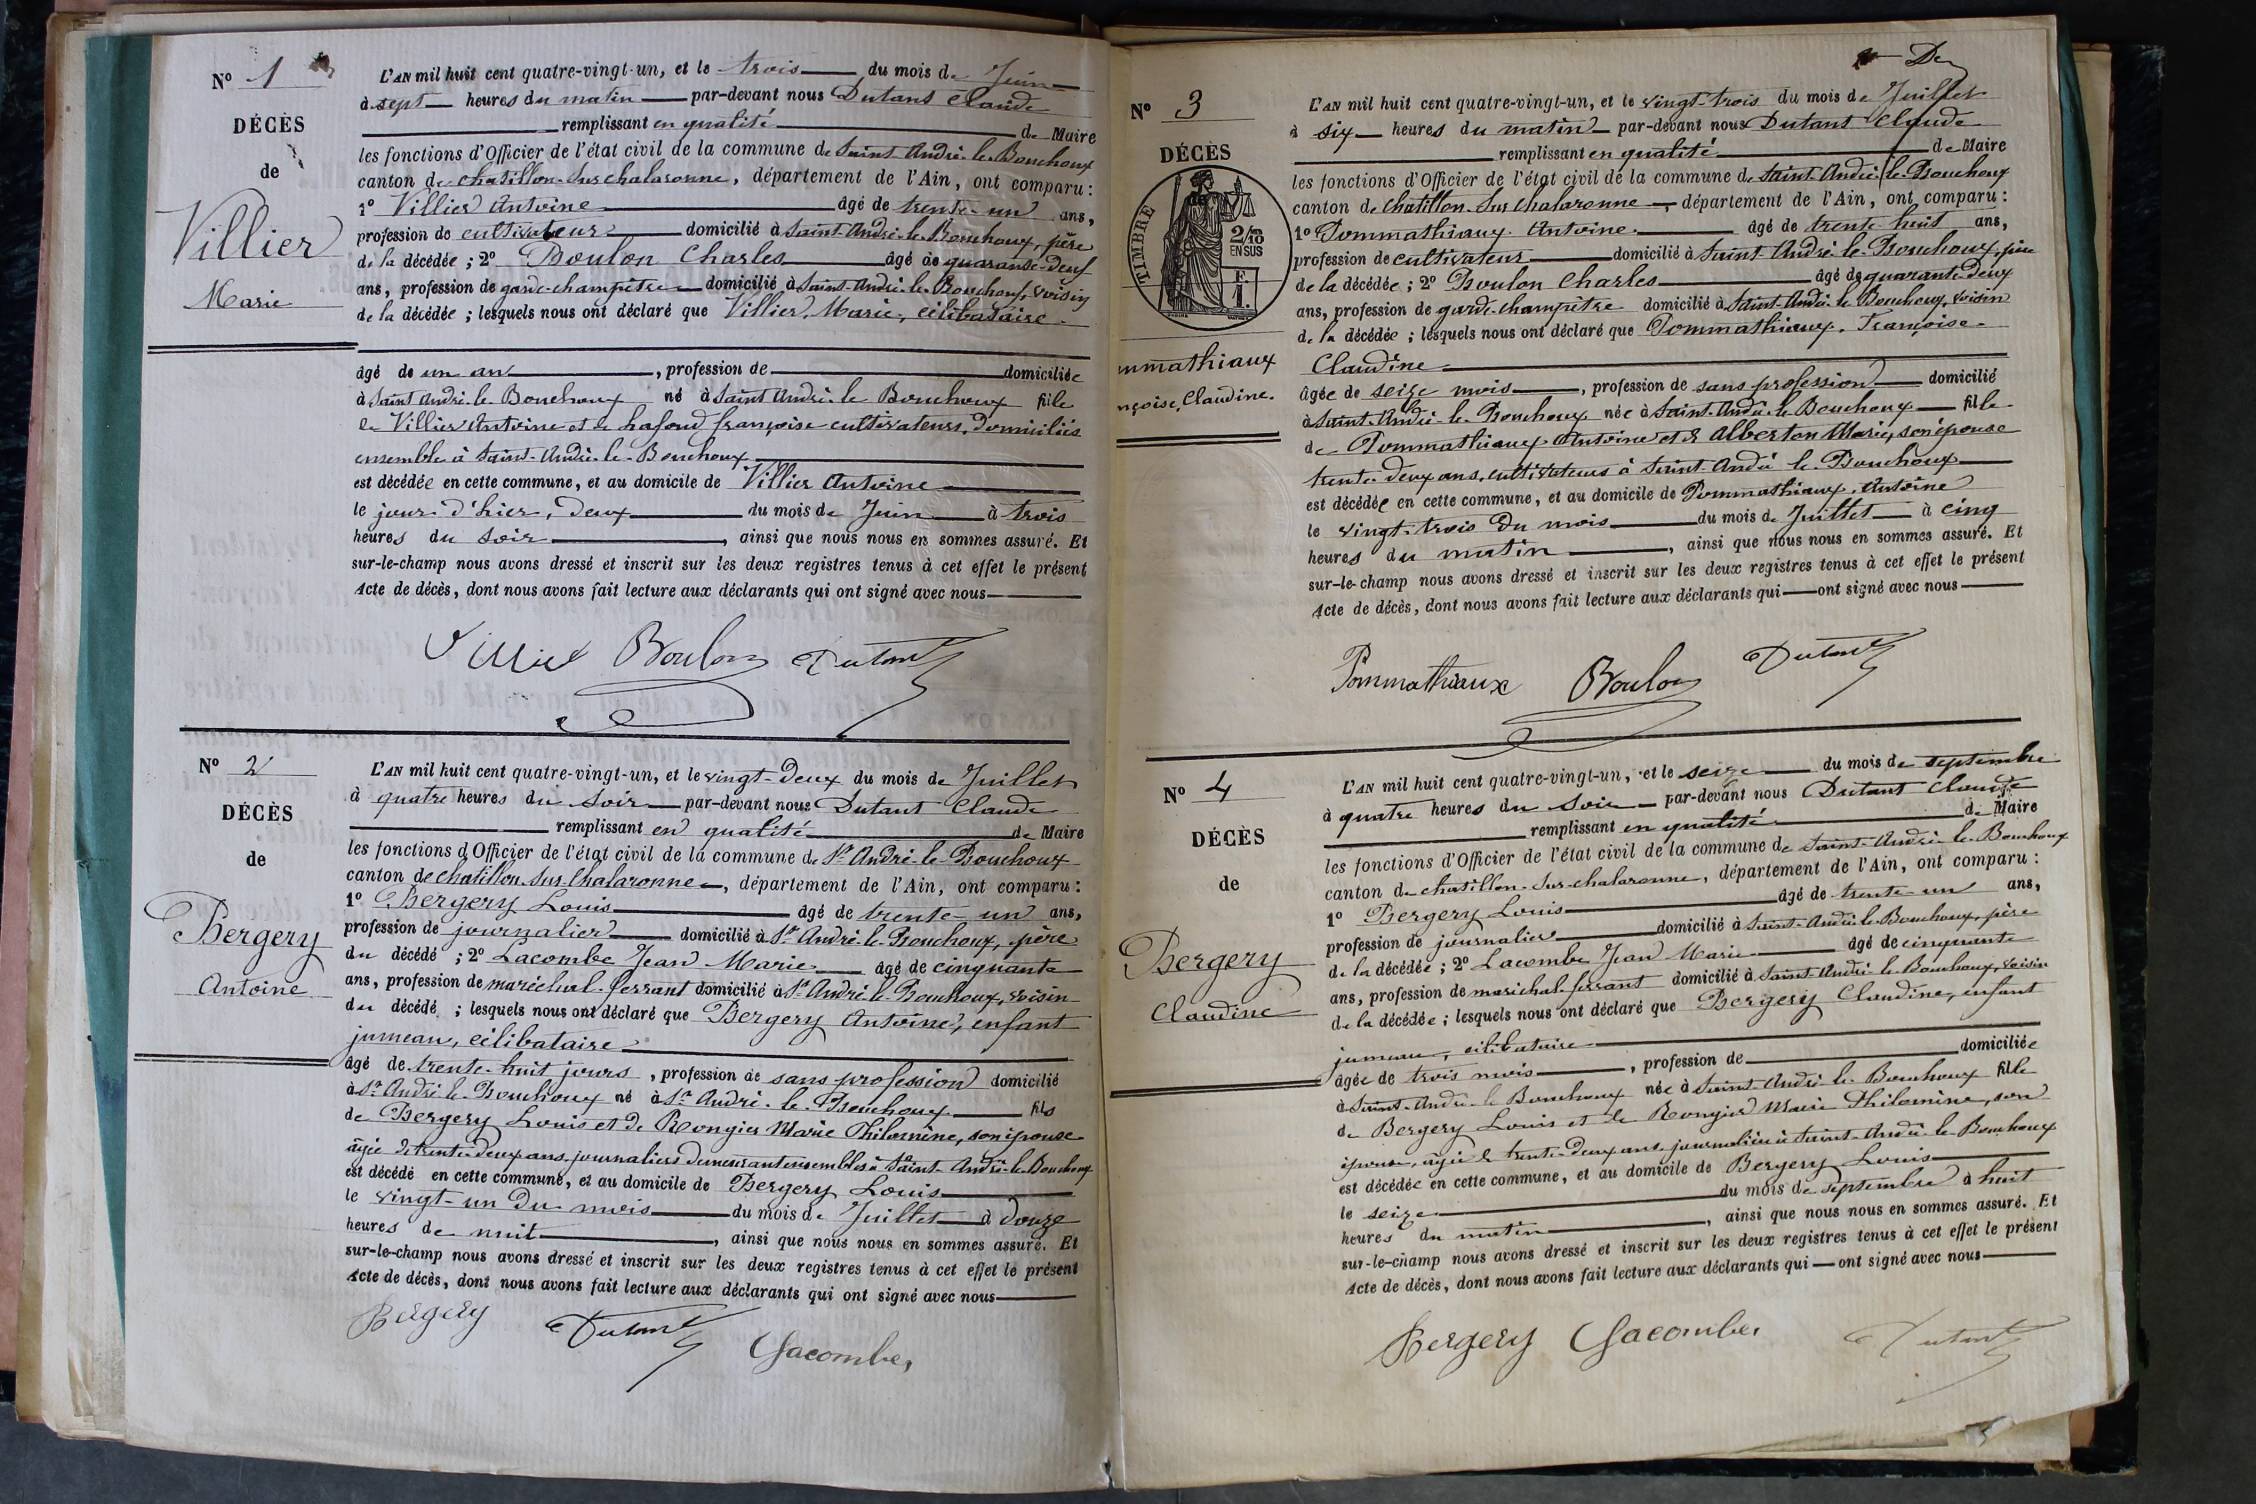 N° 1
DÉCÈS
de
Villier
Marie
L'AN mil huit cent quatre-vingt-un, et le trois du mois de Juin
à sept heures du matin par-devant nous Dutant Claude
remplissant en qualité de Maire
les fonctions d'Officier de l'état civil de la commune de Saint-André-le-Bouchoux
canton de Chatillon-sur-chalaronne, département de l'Ain, ont comparu :
1° Villier Antoine âgé de trente-un ans,
profession de cultivateur domicilié à Saint-André-le-Bouchoux, père
de la décédée ; 2° Boulon Charles âgé de quarante-deux
ans, profession de garde-champêtre domicilié à Saint-André-le-Bouchoux, voisin
de la décédée ; lesquels nous ont déclaré que Villier, Marie, célibataire
âgé de un an, profession de domiciliée
à Saint André-le-Bouchoux né à Saint André-le Bouchoux fille
de Villier Antoine et de françoise cultivateurs, domiciliés
ensemble à Saint-André-le-Bouchoux
est décédée en cette commune, et au domicile de Villier Antoine
le jour d'hier, deux du mois de Juin à trois
heures du soir, ainsi que nous nous en sommes assuré. Et
sur-le-champ nous avons dressé et inscrit sur les deux registres tenus à cet effet le présent
Acte de décès, dont nous avons fait lecture aux déclarants qui ont signé avec nous
Villier Boulon Dutant
N° 2
DÉCÈS
de
Bergery
Antoine
L'AN mil huit cent quatre-vingt-un, et le vingt-deux du mois de Juillet
à quatre heures du soir par-devant nous Dutant Claude
remplissant en qualité de Maire
les fonctions d'Officier de l'état civil de la commune de St André-le-Bouchoux
canton de Chatillon-sur-Chalaronne, département de l'Ain, ont comparu :
1° Bergery Louis âgé de trente-un ans,
profession de journalier domicilié à St André-le-Bouchoux, père
du décédé ; 2° Lacombe Jean Marie âgé de cinquante
ans, profession de maréchal-ferrant domicilié à St André-le-Bouchoux, voisin
du décédé ; lesquels nous ont déclaré que Bergery Antoine, enfant
jumeau, célibataire
âgé de trente-huit jours, profession de sans profession domicilié
à St André-le-Bouchoux né à St André-le-Bouchoux fils
de Bergery Louis et de Rongier Marie Philomène, son épouse
âgée de trente-deux ans, journaliers demeurant ensembles à Saint-André-le-Bouchoux
est décédé en cette commune, et au domicile de Bergery Louis
le vingt-un du mois du mois de Juillet à douze
heures de nuit, ainsi que nous nous en sommes assuré. Et
sur-le-champ nous avons dressé et inscrit sur les deux registres tenus à cet effet le présent
Acte de décès, dont nous avons fait lecture aux déclarants qui ont signé avec nous
Bergery Dutant Lacombe
De
N° 3
DÉCÈS
de
TIMBRE
2/10
EN SUS
F
1.
mmathiaux
nçoise, Claudine.
L'AN mil huit cent quatre-vingt-un, et le vingt-trois du mois de Juillet
à six heures du matin par-devant nous Dutant Claude
remplissant en qualité de Maire
les fonctions d'Officier de l'état civil de la commune de Saint-André-le-Bouchoux
canton de Chatillon-sur Chalaronne, département de l'Ain, ont comparu :
1° Pommathiaux Antoine âgé de trente huit ans,
profession de cultivateur domicilié à Saint-André-le-Bouchoux, père
de la décédée ; 2° Boulon Charles âgé de quarante-deux
ans, profession de garde-champêtre domicilié à Saint-André-le Bouchoux, voisin
de la décédée ; lesquels nous ont déclaré que Pommathiaux, Françoise-
Claudine
âgée de seize mois, profession de sans profession domicilié
à Saint-André-le-Bouchoux née à Saint-André-le-Bouchoux fille
de Pommathiaux Antoine et de Alberton Marie, son épouse
trente-deux ans, cultivateurs à Saint-André le-Bouchoux
est décédée en cette commune, et au domicile de Pommathiaux, Antoine
le vingt-trois du mois du mois de Juillet à cinq
heures du matin, ainsi que nous nous en sommes assuré. Et
sur-le-champ nous avons dressé et inscrit sur les deux registres tenus à cet effet le présent
Acte de décès, dont nous avons fait lecture aux déclarants qui ont signé avec nous
Pommathiaux Boulon Dutant
N° 4
DÉCÈS
de
Bergery
Claudine
L'AN mil huit cent quatre-vingt-un, et le seize du mois de septembre
à quatre heures du soir par-devant nous Dutant Claude
remplissant en qualité de Maire
les fonctions d'Officier de l'état civil de la commune de Saint-André-le-Bouchoux
canton de Chatillon-sur-chalaronne, département de l'Ain, ont comparu :
1° Bergery Louis âgé de trente-un ans,
profession de journalier domicilié à Saint-André-le-Bouchoux, père
de la décédée ; 2° Lacombe Jean Marie âgé de cinquante
ans, profession de maréchal-ferrant domicilié à Saint-André-le-Bouchoux, voisin
de la décédée ; lesquels nous ont déclaré que Bergery Claudine, enfant
jumeau, célibataire
âgée de trois mois, profession de domiciliée
à Saint-André-le-Bouchoux née à Saint-André-le-Bouchoux fille
de Bergery Louis et de Rongier Marie Philomène, son
épouse, âgée de trente-deux ans, journaliers à Saint-André-le-Bouchoux
est décédée en cette commune, et au domicile de Bergery Louis
le seize du mois de septembre à huit
heures du matin, ainsi que nous nous en sommes assuré. Et
sur-le-champ nous avons dressé et inscrit sur les deux registres tenus à cet effet le présent
Acte de décès, dont nous avons fait lecture aux déclarants qui ont signé avec nous
Bergery Lacombe Dutant